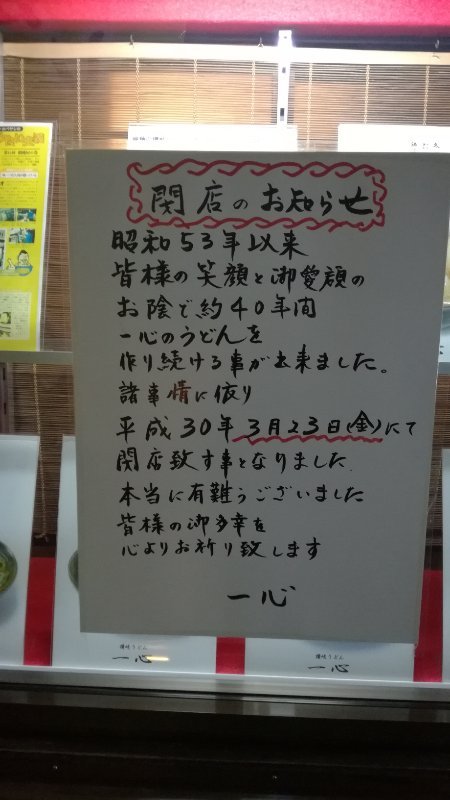 閉店のお知らせ
昭和53年以来
皆様の笑顔と御愛顧の
お陰で約40年間
一心のうどんを
作り続ける事が出来ました。
諸事情に依り
平成30年3月23日(金)にて
閉店致す事となりました
本当に有難うございました
皆様の御多幸を
心よりお祈り致します
一心
讃岐うどん
一心
讃岐うどん
一心